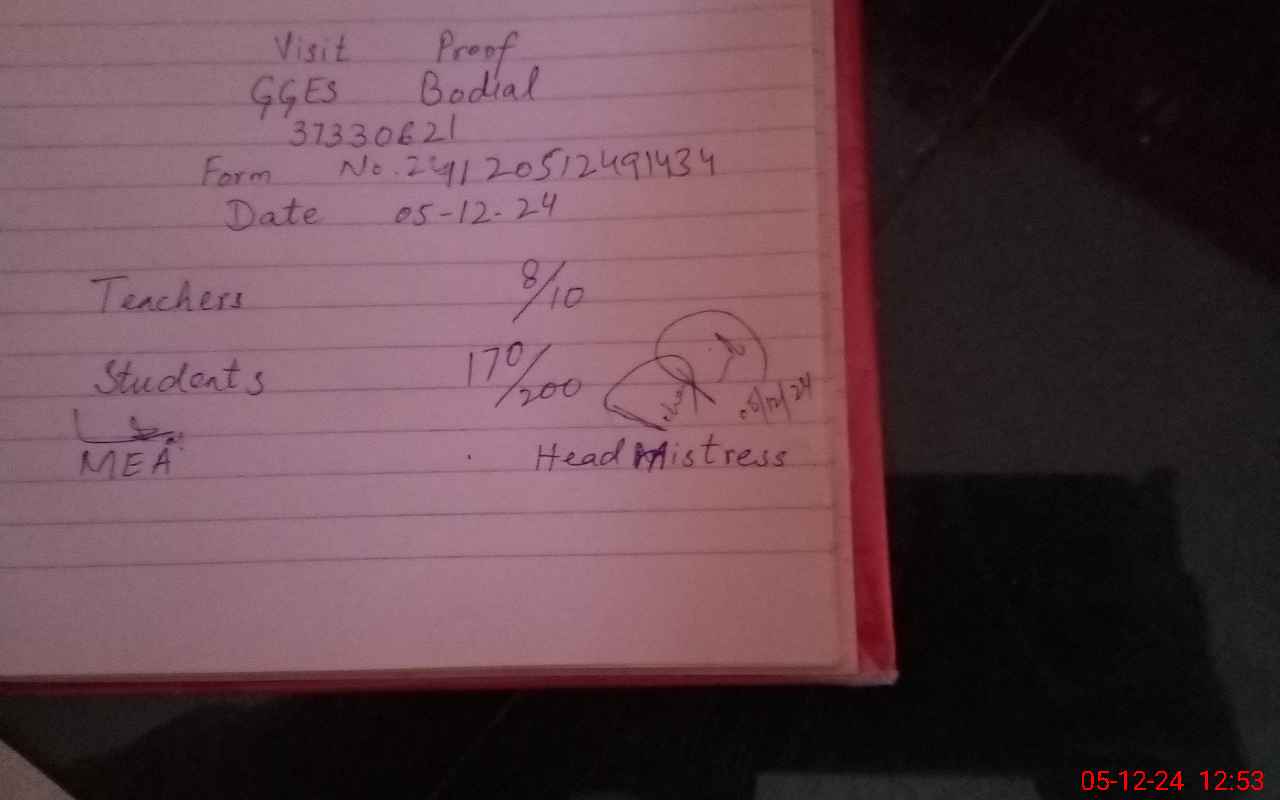 Visit Proof
GGES Bodial
37330621
Form No. 249120512491434
Date 05-12-24
Teachers 8/10
Students 170/200
05/12/24
MEA
Head Mistress
05-12-24 12:53